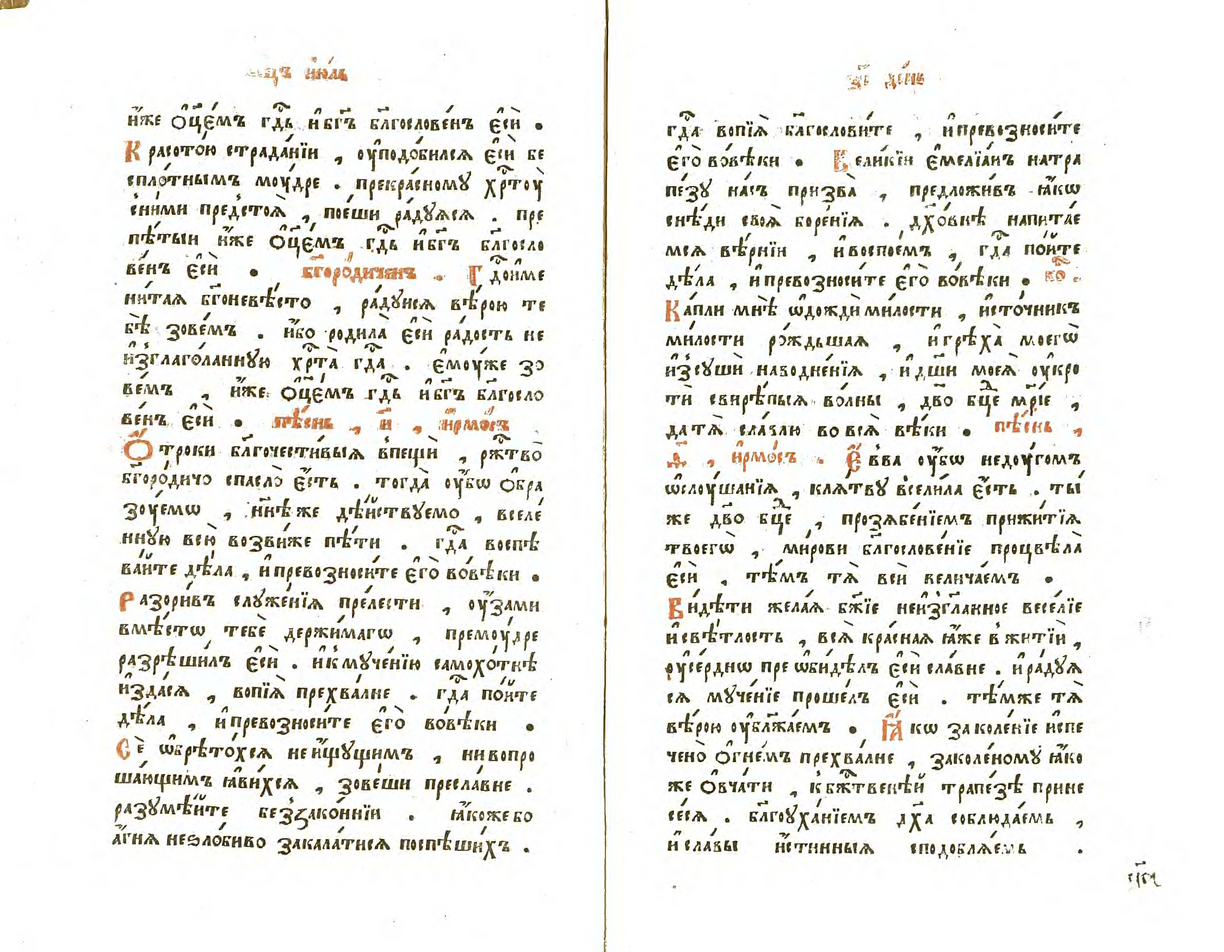 мцъ июль
и҆́же ѻ҆ц҃е́мъ гдⷭ҇ь и҆ бг҃ъ блг҃ослове́нъ є҆сѝ .
Красото́ю страда́нїи , оу҆подо́билсѧ є҆сѝ бе
спло́тнымъ моу́дре . прекра́сному хрⷭ҇тоу̀
сни́ми предстоѧ̀ , пое́ши ра́дуѧсѧ . пре
пѣ́тыи и҆́же ѻ҆ц҃е́мъ гдⷭ҇ь и҆ бг҃ъ блг҃осло
ве́нъ є҆сѝ . бг҃оро́диченъ . Гдⷭ҇ои҆ме
ни́таѧ бг҃оневѣ́сто , ра́дуисѧ вѣ́рою те
бѣ̀ зове́мъ . и҆́бо родила̀ є҆сѝ ра́дость не
и҆зглаго́ланную хрⷭ҇та̀ гдⷭ҇а . є҆моу́же зо
ве́мъ , и҆́же ѻ҆ц҃е́мъ гдⷭ҇ь и҆ бг҃ъ блг҃осло
ве́нъ є҆сѝ . пѣ́снь , и҃ , і҆рмо́съ
Ѻ҆́троки блг҃очести́выѧ впещѝ , ржⷭ҇тво̀
бг҃оро́дичо спасло̀ є҆́сть . тогда̀ оу҆́бѡ ѻ҆бра
зоу́емѡ , нн҃ѣ же дѣ́иствуемо , вселе́
нную всю̀ возви́же пѣ́ти . гдⷭ҇а воспѣ
ва́ите дѣ́ла , и҆ превозноси́те є҆го̀ во́вѣки .
Разори́въ служе́нїѧ пре́лести , оу҆́зами
вмѣ́стѡ тебѐ держи́магѡ , премоу́дре
разрѣши́лъ є҆сѝ . и҆ к муче́нїю самохо́тнѣ
и҆здасѧ̀ , вопїѧ̀ прехва́лне . гдⷭ҇а по́ите
дѣ́ла , и҆ превозноси́те є҆го̀ во́вѣки .
Сѐ ѡ҆брѣто́хсѧ не и҆́щущимъ , ни вопро
ша́ющимъ ꙗ҆ви́хсѧ , зове́ши пресла́вне .
разумѣ́ите безꙁако́ннїи . ꙗ҆́коже бо
а҆́гнѧ неꙁло́биво закала́тисѧ поспѣши́хъ .
з҃і де́нь
гдⷭ҇а вопїѧ̀ блг҃ослови́те , и҆ превозноси́те
є҆го̀ во́вѣки . Вели́кїи є҆мелїа́нъ на тра
пе́зу на́съ призва̀ , предложи́въ ꙗ҆́кѡ
снѣ́ди своѧ̀ боре́нїѧ . дх҃о́внѣ напита́е
мсѧ вѣ́рнїи , и҆ воспое́мъ , гдⷭ҇а по́ите
дѣ́ла , и҆ превозноси́те є҆го̀ во́вѣки . бо .
Ка́пли мнѣ̀ ѡ҆дождѝ ми́лости , и҆сто́чникъ
ми́лости ро́ждьшаѧ , и҆ грѣха̀ моегѡ̀
и҆зсушѝ наводне́нїѧ , и҆ дш҃и моеѧ̀ оу҆кро
тѝ свирѣ́пыѧ во́лны , дв҃о бц҃е мр҃іе ,
да тѧ̀ сла́влю во всѧ̀ вѣ́ки . пѣ́снь ,
ѳ҃ , і҆рмо́съ . Є҆́вва оу҆́бѡ недоу́гомъ
ѡ҆слоу́шанїѧ , клѧ́тву всели́ла є҆́сть . ты́
же дв҃о бц҃е , прозѧбе́нїемъ прижи́тїѧ
твоегѡ̀ , ми́рови блг҃ослове́нїе процвѣла̀
є҆сѝ , тѣ́мъ тѧ̀ всѝ велича́емъ .
Ви́дѣти жела́ѧ бж҃їе неи҆зглⷭ҇а́нное весе́лїе
и҆ свѣ́тлость , всѧ̀ кра́снаѧ ꙗ҆́же в житїѝ ,
оу҆се́рднѡ преѡби́дѣлъ є҆сѝ сла́вне . и҆ ра́дуѧ
сѧ муче́нїе проше́лъ є҆сѝ . тѣ́мже тѧ̀
вѣ́рою оу҆блж҃а́емъ . Ꙗ҆́кѡ заколе́нїе и҆спе
чено̀ ѻ҆гне́мъ прехва́лне , заколе́ному ꙗ҆́ко
же ѻ҆вча́ти , к бжⷭ҇твенѣ́й трапе́зѣ прине
се́сѧ . блг҃оуха́нїемъ дх҃а соблюда́емь ,
и҆ сла́вы и҆́стинныѧ сподоблѧ́емь .